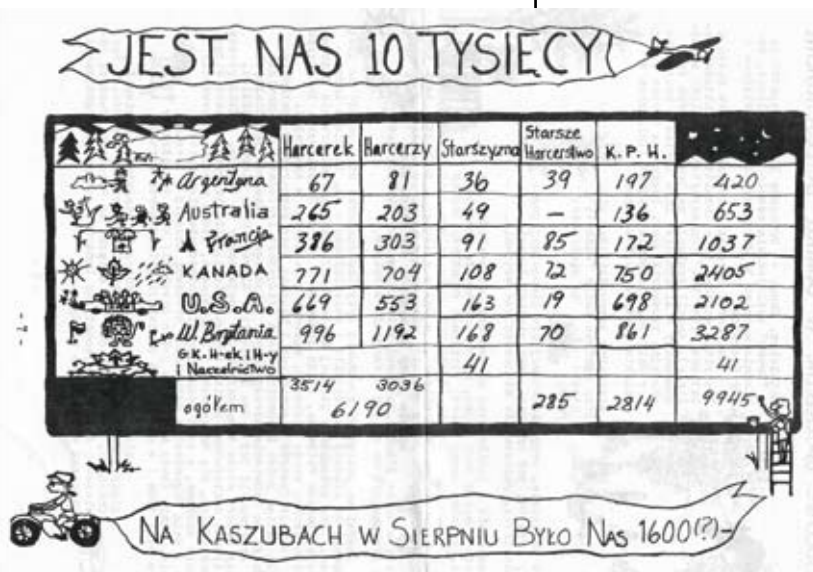 JEST NAS 10 TYSIĘCY!
Harcerek Harcerzy Starszyzna Starsze Harcerstwo K.P.H.
Argentyna 67 81 36 39 197 420
Australia 265 203 49 — 136 653
Francja 386 303 91 85 172 1037
KANADA 771 704 108 72 750 2405
U.S.A. 669 553 163 19 698 2102
W. Brytania 996 1192 168 70 861 3287
G.K.H-ek i H-y i Naczelnictwo 41 41
ogółem 3514 3036 6190 285 2814 9945
- 2 -
NA KASZUBACH W SIERPNIU BYŁO NAS 1600(?)-